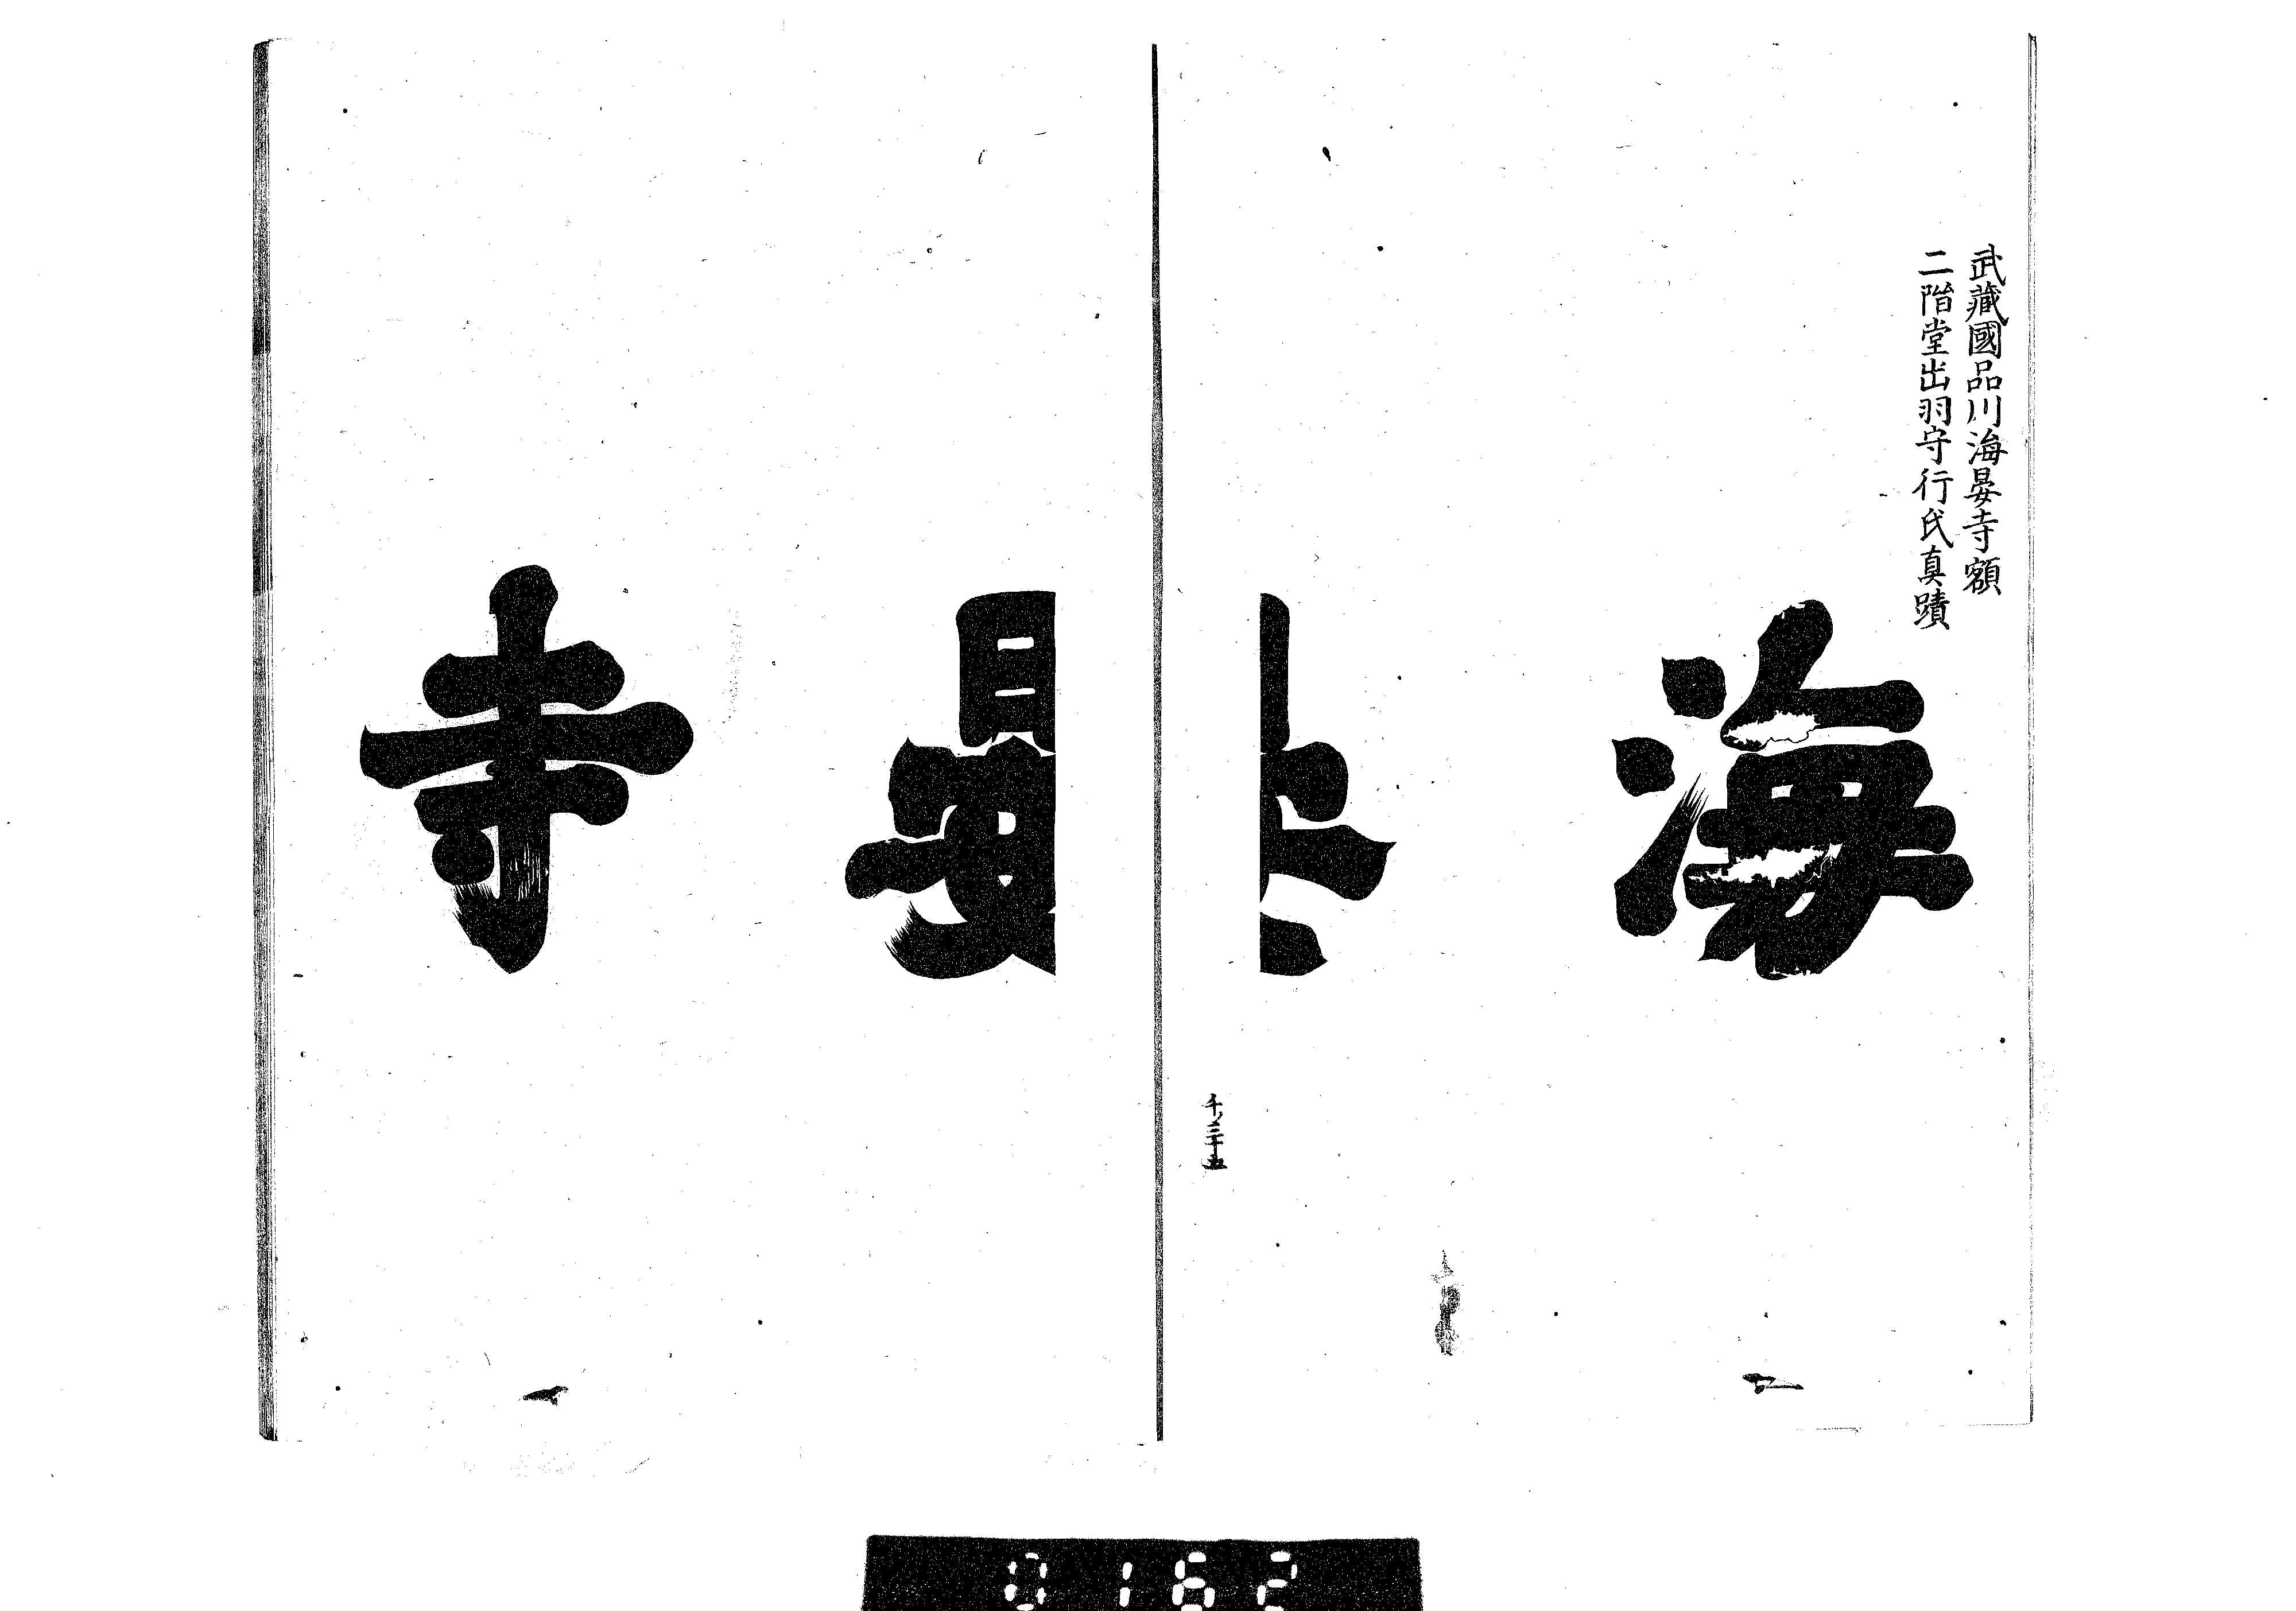 武藏國品川海晏寺額
二階堂出羽守行氏真蹟
海
晏
寺
千ノ三十五
0162